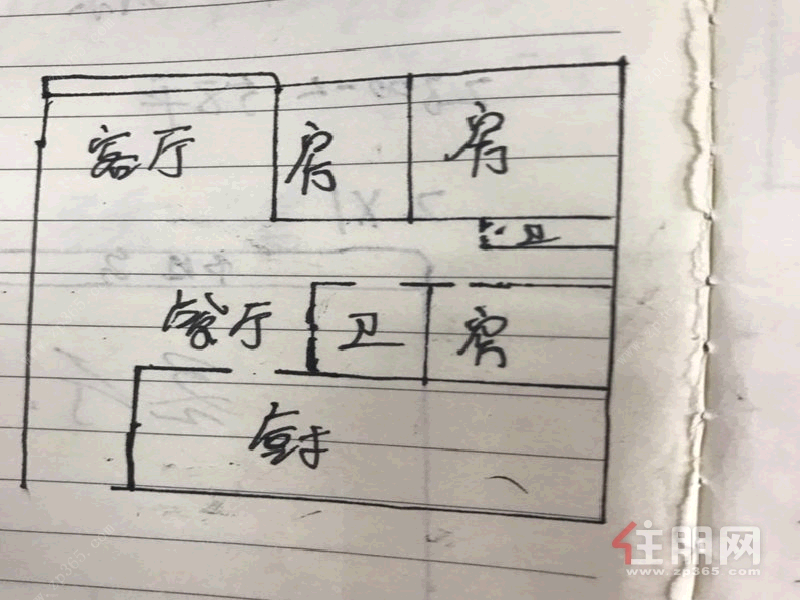 客厅
房
房
卫
餐厅
卫
房
厨
住朋网
www.zp365.com